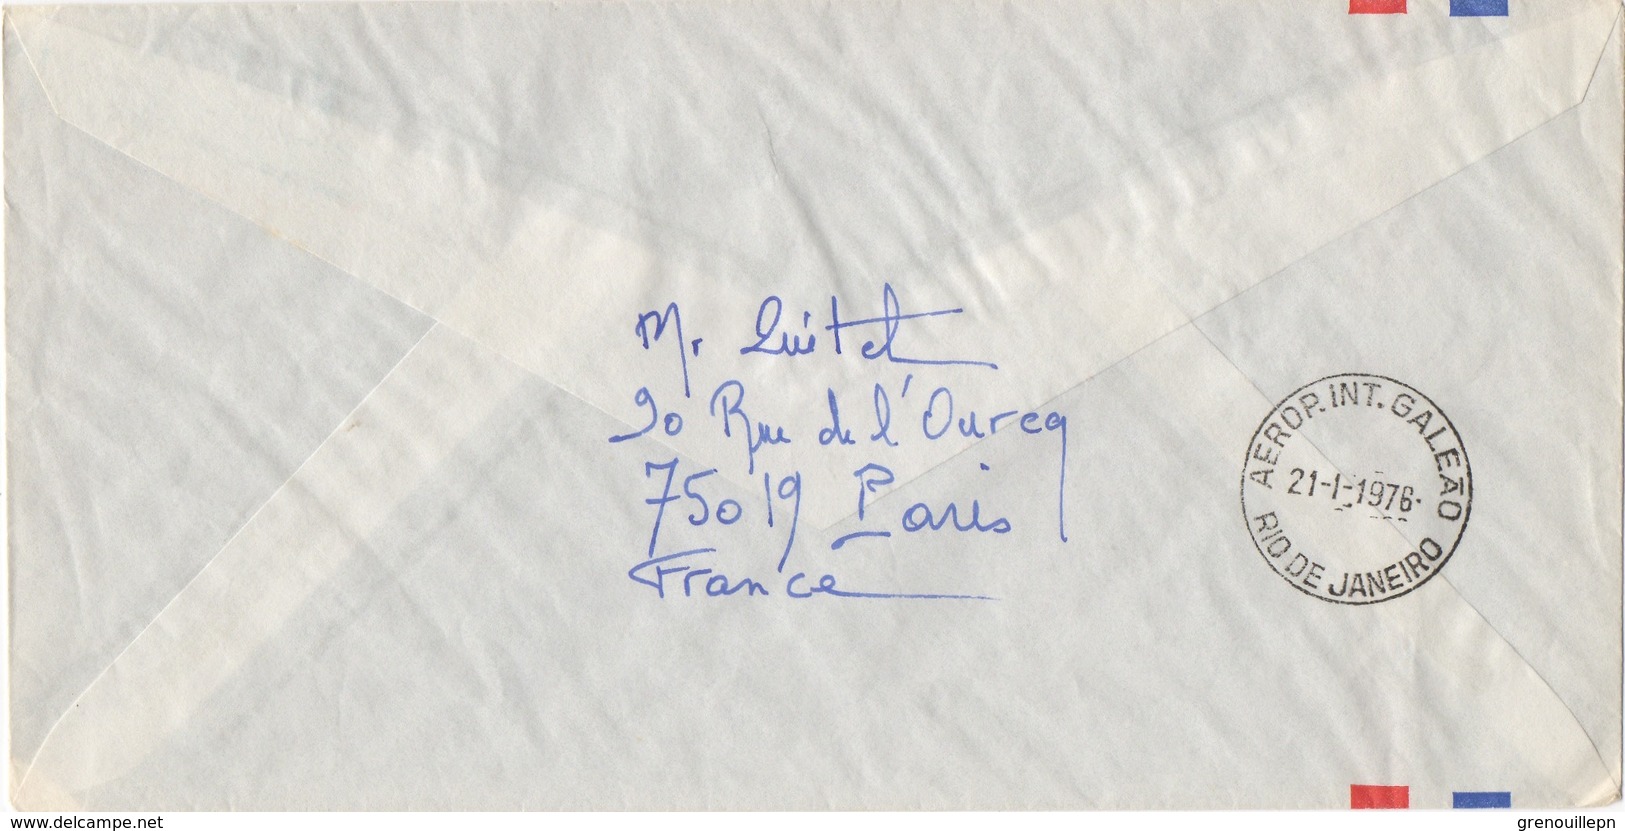 Mr Quitet
90 Rue de l'Ourcq
75019 Paris
France
AEROP. INT. GALEÃO
21-I-1976
RIO DE JANEIRO
www.delcampe.net
grenouillepn